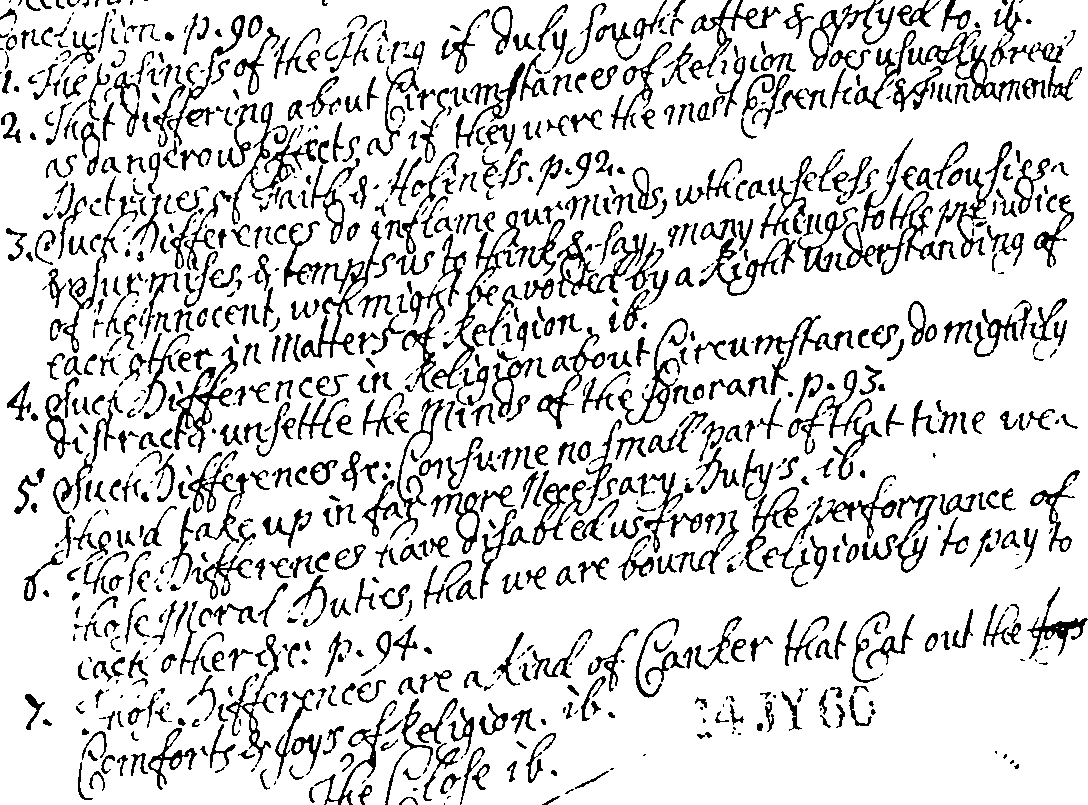 Conclusion. p. 90.
1. The Easiness of the Thing if duly sought after & aplyed to. ib.
2. That differing about Circumstances of Religion does usually breed
as dangerous Effects, as if they were the most Essential & Fundamental
Doctrines of Faith & Holiness. p. 92.
3. Such Differences do inflame our minds, wth causeless Jealousies
& surmises, & tempts us to think, & say, many things to the prejudice
of the Innocent, wch might be avoided by a Right understanding of
each other in Matters of Religion. ib.
4. Such Differences in Religion about Circumstances, do mightily
distract & unsettle the Minds of the Ignorant. p. 93.
5. Such Differences &c: Consume no small part of that time we
shou'd take up in far more Necessary Duty's. ib.
6. Those Differences have disabled us from the performance of
those Moral Duties, that we are bound Religiously to pay to
each other &c: p. 94.
7. Those Differences are a Kind of Canker that Eat out the Joys
Comforts & Joys of Religion. ib.
The Close ib.
14 JY 60